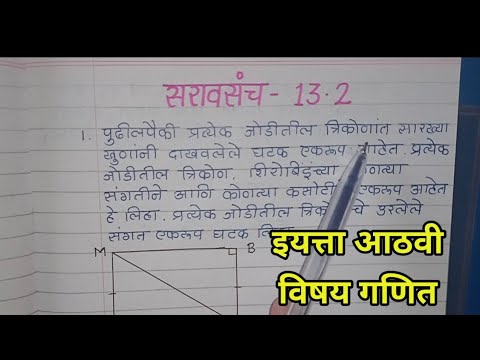 सरावसंच - 13.2
1. पुढीलपैकी प्रत्येक जोडीतील त्रिकोणांत सारख्या
खुणांनी दाखवलेले घटक एकरूप आहेत. प्रत्येक
जोडीतील त्रिकोण. शिरोबिंदूंच्या कोणत्या
संगतीने आणि कोणत्या कसोटीने एकरूप आहेत
हे लिहा. प्रत्येक जोडीतील उरलेले
संगत एकरूप घटक
M B
इयत्ता आठवी
विषय गणित